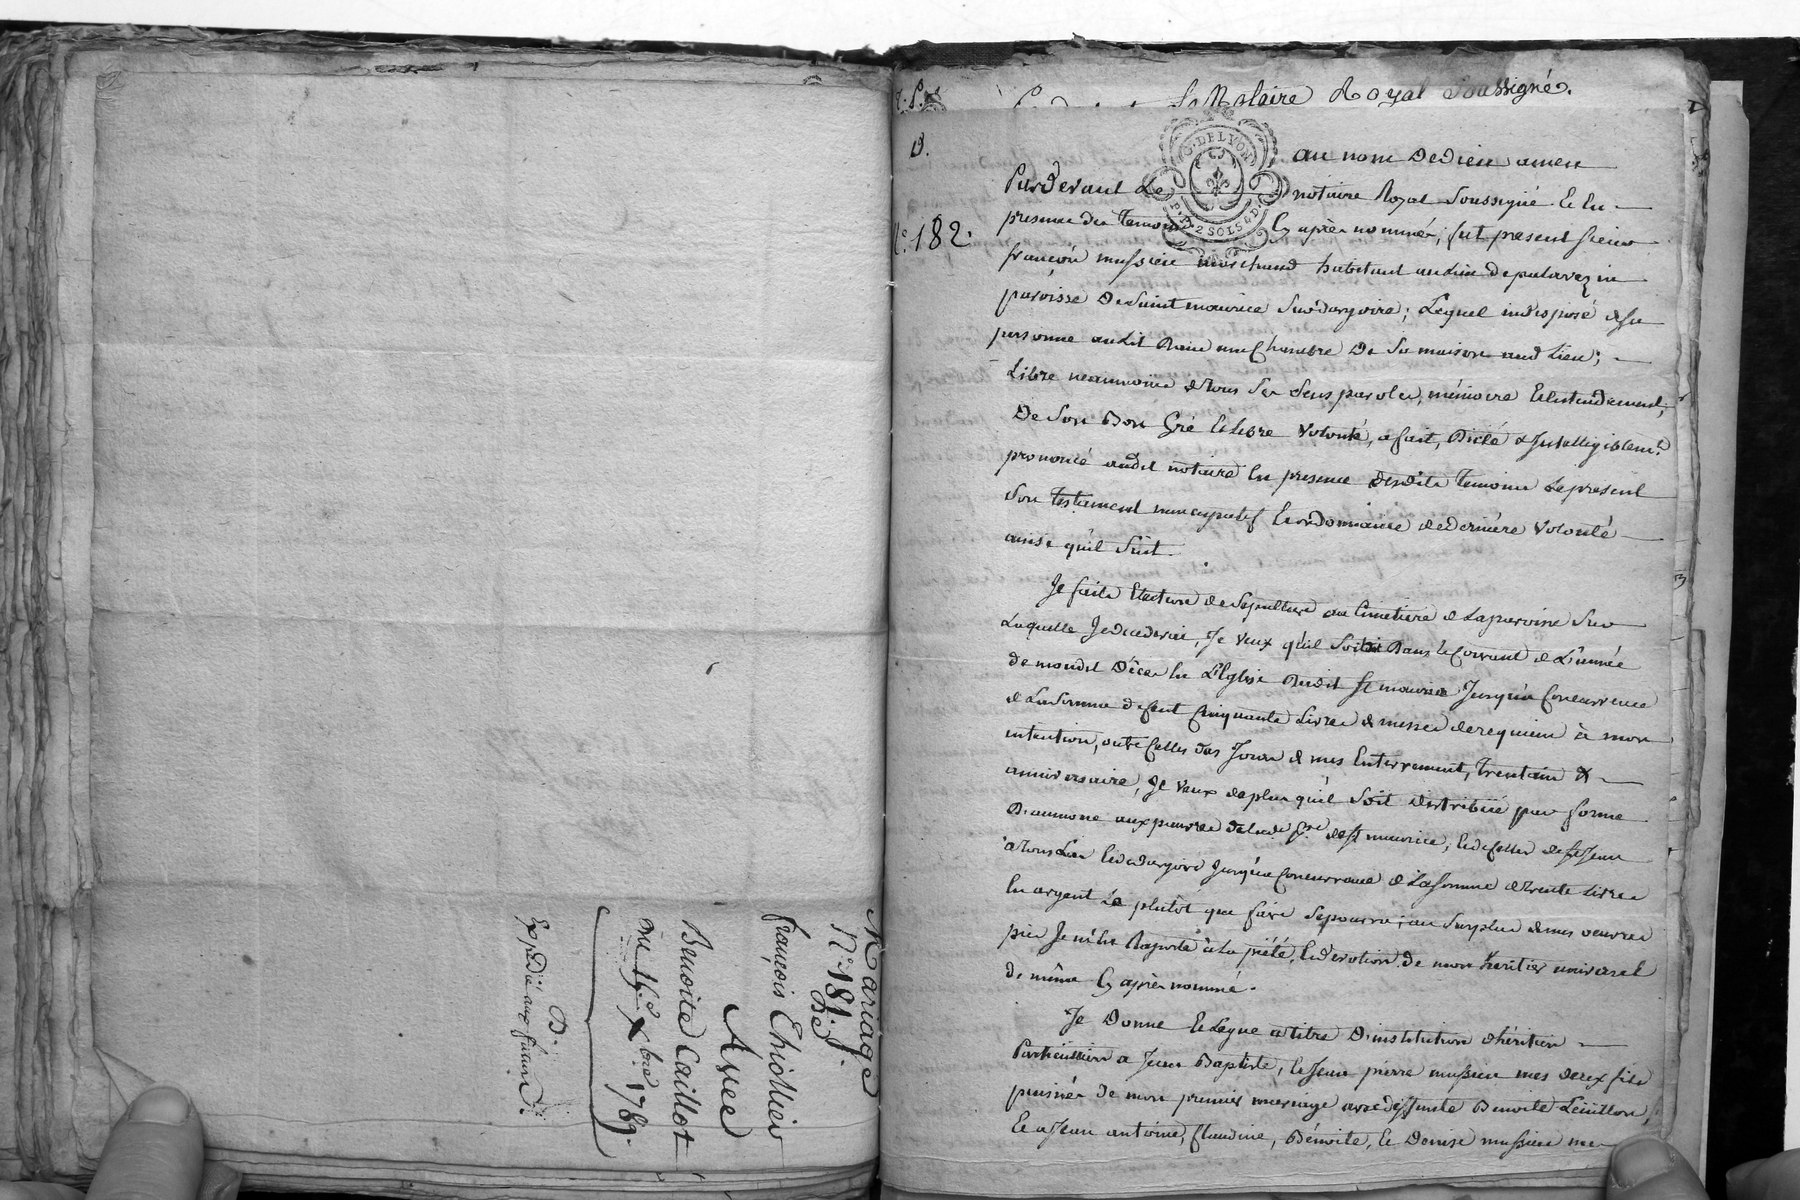 Mariage
N.º 181.
De
François Thiollier
Avec
Benoite Caillot
du 16.e Xbre 1789.
D.
Expédié aux futurs
Le Notaire Royal Soussigné.
D.
N.º 182.
G. DE LYON
P. P. 2 SOLS 4 D.
au nom de dieu amen
Pardevant Le notaire Royal Soussigné Et En
presence des temoins Cy après nommés, fut present sieur
françois mussieu marchand habitant au lieu de palavezin
paroisse de Saint maurice Sur dargoire; Lequel indisposé de sa
personne au Lit dans une Chambre de Sa maison aud Lieu;
Libre neanmoins de tous Ses Sens paroles, mémoire Et Entendement,
De Son Bon Gré Et Libre Volonté, a fait, Dicté & Intelligiblem.t
prononcé audit notaire En presence desdits temoins Le present
Son testament nuncupatif Et ordonnance de derniere Volonté
ainsi qu'il Suit.
Je fais Election de Sepulture au Cimetiere de La paroisse Sur
Laquelle Je decederai, Je veux qu'il Soit dit Dans le Courant de L'année
de mondit décès En L'Eglise dudit St maurice Jusqu'à Concurrence
de La Somme de Cent Cinquante Livres de messes de requiem à mon
intention, outre Celles des Jours de mes Enterrement, trentain &
anniversaire, Je Veux de plus qu'il Soit distribué par forme
D'aumone aux pauvres de lade p.sse de St maurice, Et de Celles de St Jean
a tous Las Et de dargoire Jusqu'à Concurrance de La Somme de trente Livres
En argent Le plutôt que faire Se pourra; au Surplus de mes oeuvres
pies Je m'En Raporte à La piété, Et devotion de mon heritier universel
de même Cy après nommé.
Je Donne Et Legue a titre D'institution d'héritiers
Particuliers a Jean Baptiste, Et Jean pierre mussieu mes deux fils
puisnés de mon premier mariage avec deffunte Benoite Leüillon,
Et a Jean antoine, Claudine, Bénoite, Et Denise mussieu mes